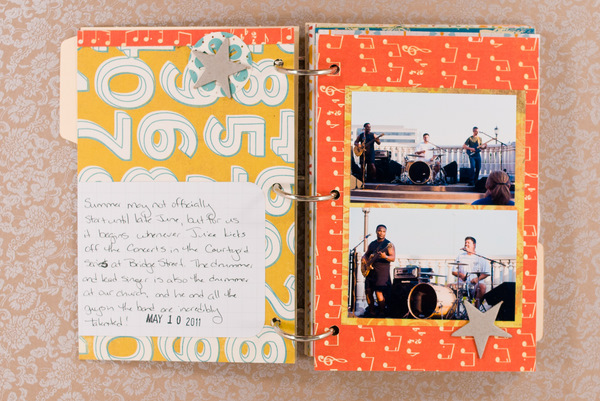 Summer may not officially
start until late June, but for us
it begins whenever Juice kicks
off the Concerts in the Courtyard
Series at Bridge Street. The drummer,
and lead singer is also the drummer
at our church, and he and all the
guys in the band are incredibly
talented!
MAY 10 2011